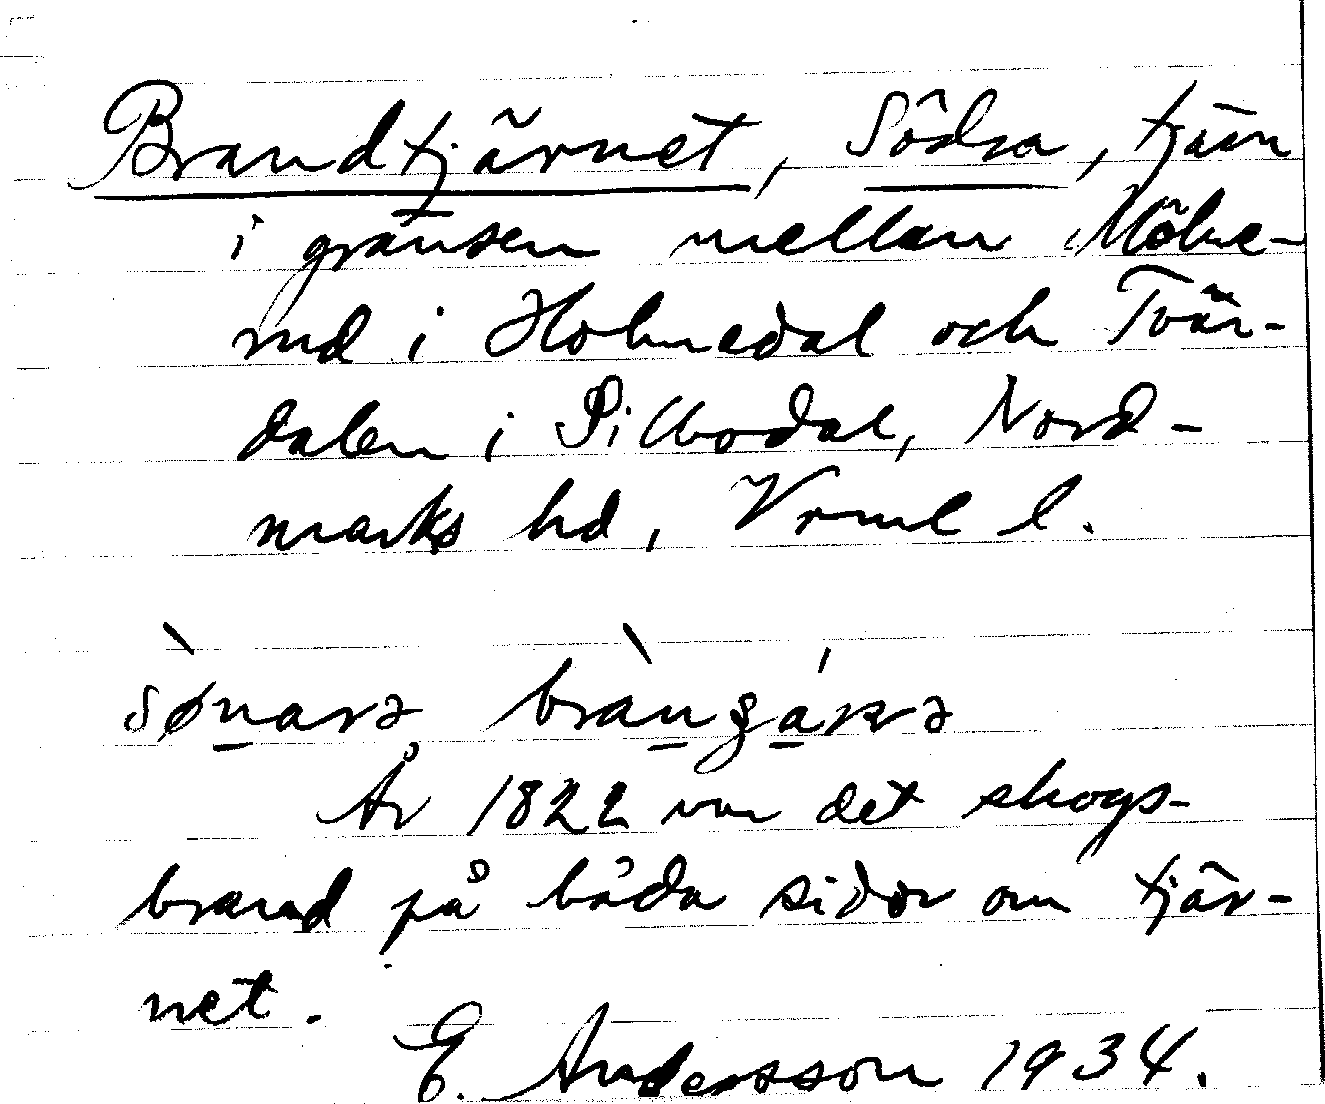 Brandtjärnet, Södra, tjärn
i gränsen mellan Mölne-
rud i Holmedal och Tvär-
dalen i Sillbodal, Nord-
marks hd, Vrml l.
År 1822 var det skogs-
brand på båda sidor om tjär-
net.
E. Andersson 1934.